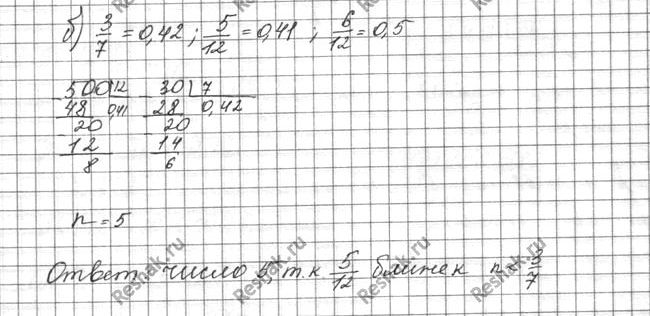 б) 3/7 = 0,42 ; 5/12 = 0,41 ; 6/12 = 0,5
500 | 12   30 | 7
48   0,41   28   0,42
20   20
12   14
8   6
n = 5
Ответ: число 5, т.к 5/12 ближе к n = 3/7
Reshak.ru
Reshak.ru
Reshak.ru
Reshak.ru
Reshak.ru